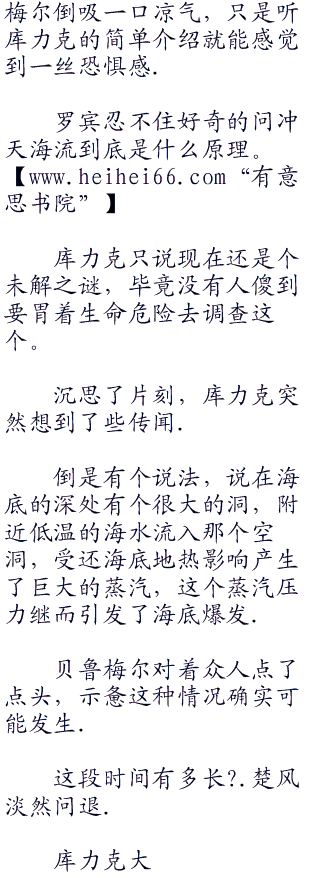 梅尔倒吸一口凉气，只是听
库力克的简单介绍就能感觉
到一丝恐惧感.
罗宾忍不住好奇的问冲
天海流到底是什么原理。
【www.heihei66.com“有意
思书院”】
库力克只说现在还是个
未解之谜，毕竟没有人傻到
要冒着生命危险去调查这
个。
沉思了片刻，库力克突
然想到了些传闻.
倒是有个说法，说在海
底的深处有个很大的洞，附
近低温的海水流入那个空
洞，受还海底地热影响产生
了巨大的蒸汽，这个蒸汽压
力继而引发了海底爆发.
贝鲁梅尔对着众人点了
点头，示惫这种情况确实可
能发生.
这段时间有多长?.楚风
淡然问退.
库力克大